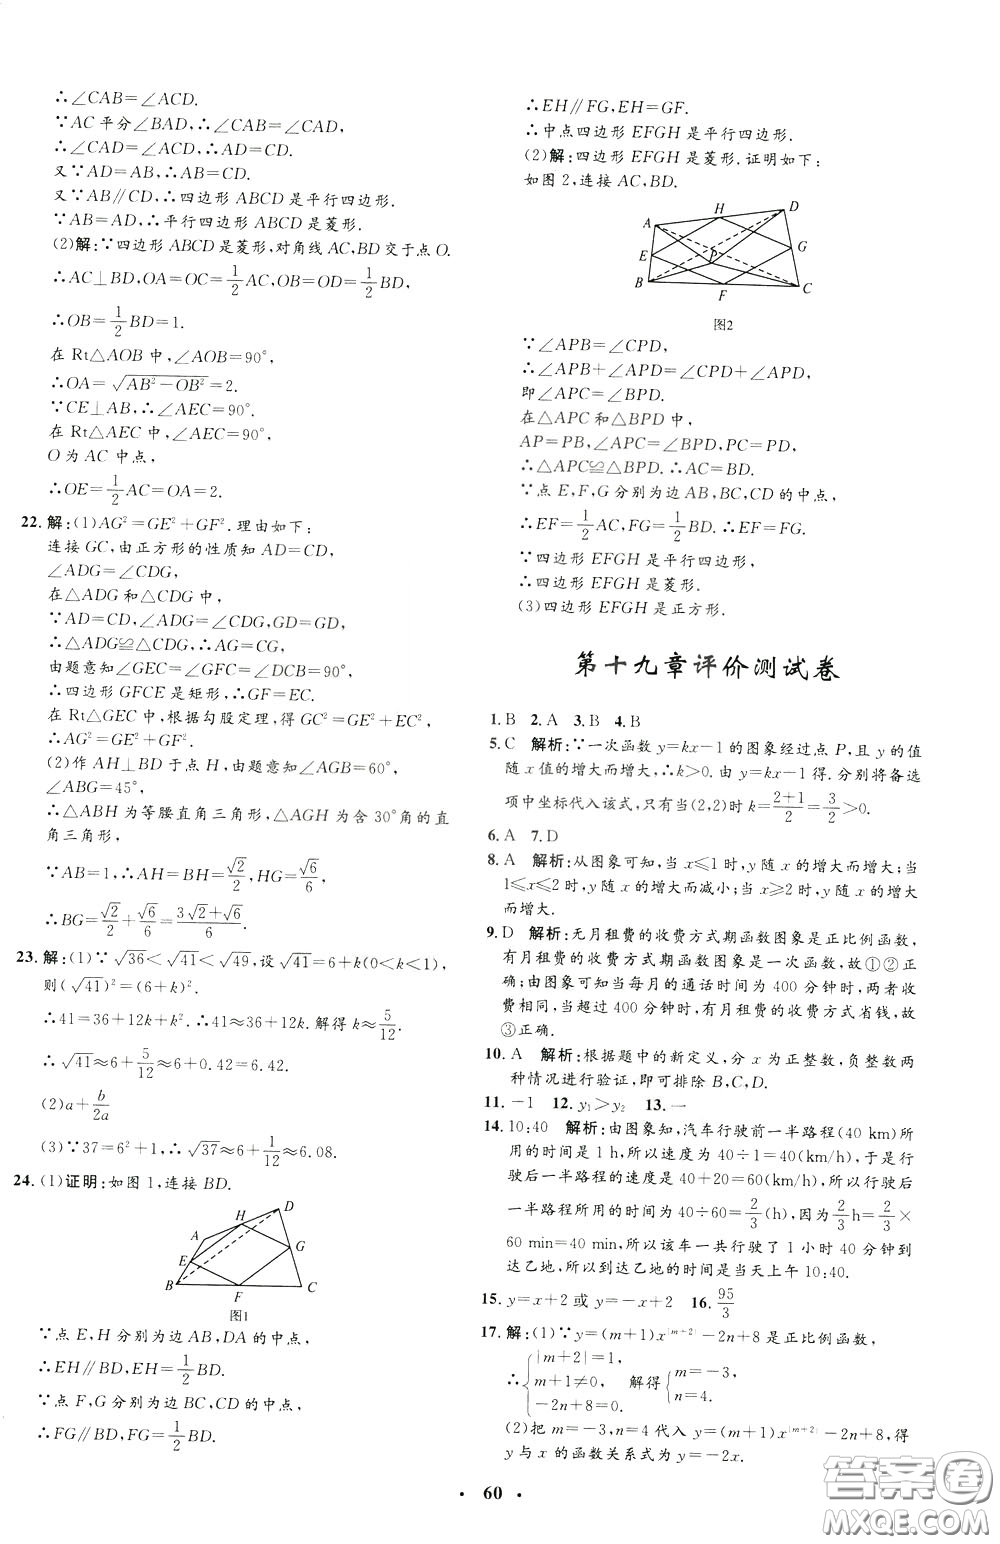 ∴∠CAB=∠ACD.
∵AC平分∠BAD,∴∠CAB=∠CAD,
∴∠CAD=∠ACD,∴AD=CD.
又∵AD=AB,∴AB=CD.
又∵AB∥CD,∴四边形ABCD是平行四边形.
∵AB=AD,∴平行四边形ABCD是菱形.
(2)解:∵四边形ABCD是菱形,对角线AC,BD交于点O.
∴AC⊥BD,OA=OC=1/2AC,OB=OD=1/2BD,
∴OB=1/2BD=1.
在Rt△AOB中,∠AOB=90°,
∴OA=√(AB²-OB²)=2.
∵CE⊥AB,∴∠AEC=90°.
在Rt△AEC中,∠AEC=90°,
O为AC中点,
∴OE=1/2AC=OA=2.
22.解:(1)AG²=GE²+GF².理由如下:
连接GC,由正方形的性质知AD=CD,
∠ADG=∠CDG,
在△ADG和△CDG中,
∵AD=CD,∠ADG=∠CDG,GD=GD,
∴△ADG≌△CDG,∴AG=CG,
由题意知∠GEC=∠GFC=∠DCB=90°,
∴四边形GFCE是矩形,∴GF=EC.
在Rt△GEC中,根据勾股定理,得GC²=GE²+EC²,
∴AG²=GE²+GF².
(2)作AH⊥BD于点H,由题意知∠AGB=60°,
∠ABG=45°,
∴△ABH为等腰直角三角形,△AGH为含30°角的直
角三角形,
∵AB=1,∴AH=BH=√2/2,HG=√6/6,
∴BG=√2/2+√6/6=(3√2+√6)/6.
23.解:(1)∵√36<√41<√49,设√41=6+k(0<k<1),
则(√41)²=(6+k)²,
∴41=36+12k+k².∴41≈36+12k.解得k≈5/12.
∴√41≈6+5/12≈6+0.42=6.42.
(2)a+b/2a
(3)∵37=6²+1,∴√37≈6+1/12≈6.08.
24.(1)证明:如图1,连接BD.
H
D
A
E
G
B
F
C
图1
∵点E,H分别为边AB,DA的中点,
∴EH∥BD,EH=1/2BD.
∵点F,G分别为边BC,CD的中点,
∴FG∥BD,FG=1/2BD.
∴EH∥FG,EH=GF.
∴中点四边形EFGH是平行四边形.
(2)解:四边形EFGH是菱形.证明如下:
如图2,连接AC,BD.
H
D
A
E
P
G
B
F
C
图2
∵∠APB=∠CPD,
∴∠APB+∠APD=∠CPD+∠APD,
即∠APC=∠BPD.
在△APC和△BPD中,
AP=PB,∠APC=∠BPD,PC=PD,
∴△APC≌△BPD.∴AC=BD.
∵点E,F,G分别为边AB,BC,CD的中点,
∴EF=1/2AC,FG=1/2BD.∴EF=FG.
∵四边形EFGH是平行四边形,
∴四边形EFGH是菱形.
(3)四边形EFGH是正方形.
第十九章评价测试卷
1.B 2.A 3.B 4.B
5.C 解析:∵一次函数y=kx-1的图象经过点P,且y的值
随x值的增大而增大,∴k>0.由y=kx-1得.分别将备选
项中坐标代入该式,只有当(2,2)时k=(2+1)/2=3/2>0.
6.A 7.D
8.A 解析:从图象可知,当x≤1时,y随x的增大而增大;当
1≤x≤2时,y随x的增大而减小;当x≥2时,y随x的增大
而增大.
9.D 解析:无月租费的收费方式期函数图象是正比例函数,
有月租费的收费方式期函数图象是一次函数,故①②正
确;由图象可知当每月的通话时间为400分钟时,两者收
费相同,当超过400分钟时,有月租费的收费方式省钱,故
③正确.
10.A 解析:根据题中的新定义,分x为正整数,负整数两
种情况进行验证,即可排除B,C,D.
11.-1 12.y₁>y₂ 13.一
14.10:40 解析:由图象知,汽车行驶前一半路程(40 km)所
用的时间是1 h,所以速度为40÷1=40(km/h),于是行
驶后一半路程的速度是40+20=60(km/h),所以行驶后
一半路程所用的时间为40÷60=2/3(h),因为2/3h=2/3×
60 min=40 min,所以该车一共行驶了1小时40分钟到
达乙地,所以到达乙地的时间是当天上午10:40.
15.y=x+2或y=-x+2 16.95/3
17.解:(1)∵y=(m+1)x^|m+2|-2n+8是正比例函数,
∴{|m+2|=1, m+1≠0, -2n+8=0, 解得{m=-3, n=4.
(2)把m=-3,n=4代入y=(m+1)x^|m+2|-2n+8,得
y与x的函数关系式为y=-2x.
• 60 •
答案圈
MXQE.COM